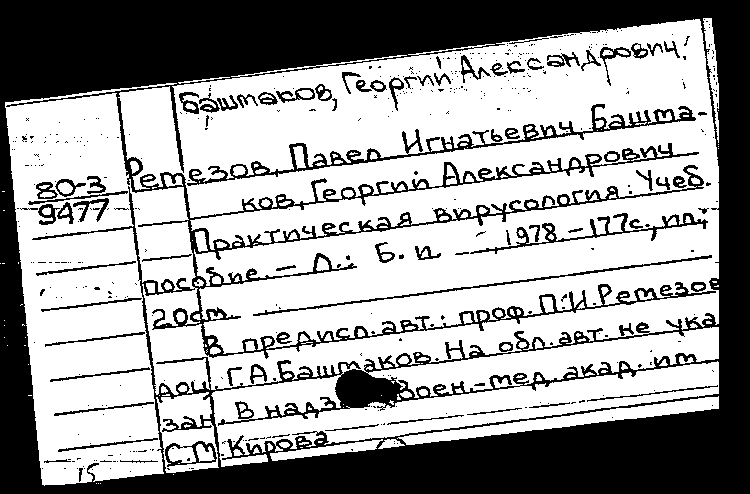 Башмаков, Георгий Александрович.
80-3
9477
Ремезов, Павел Игнатьевич, Башма-
ков, Георгий Александрович
Практическая вирусология: Учеб.
пособие. – Л.: Б. и., 1978. – 177с., ил.;
20см.
В предисл. авт.: проф. П.И.Ремезов
доц. Г.А.Башмаков. На обл. авт. не ука
зан. В надз Воен.-мед. акад. им
С.М Кирова
15